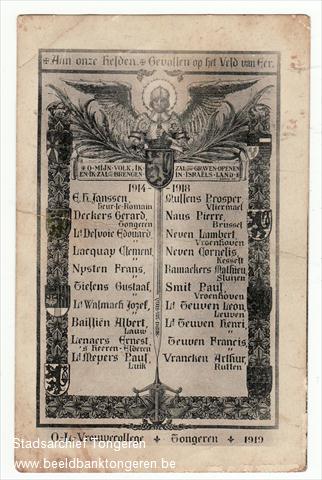 Aan onze Helden. Gevallen op het Veld van Eer.
O MIJN VOLK, IK ZAL UW GRAVEN OPENEN
EN IK ZAL U BRENGEN IN ISRAELS LAND
1914 - 1918
E.H. Janssen, Mullens Prosper,
Heur-le-Romain Vliermael
Deckers Gerard, Naus Pierre,
Tongeren Brussel
Lt Delvoie Edouard Neven Lambert,
" Vroenhoven
Lacquay Clement, Neven Cornelis,
" Kesselt
Nysten Frans, Ramaekers Mathieu
" Sluizen
Tielens Gustaaf, Smit Paul,
" Vroenhoven
Lt Walmach Jozef, Lt Teuven Leon,
" Leuven
Baillien Albert, Lt Teuven Henri,
Lauw "
Lenaers Ernest, Teuven Francis,
's Heeren-Elderen "
Lt Meyers Paul, Vrancken Arthur,
Luik Rutten
O.L. Vrouwcollege Tongeren 1919
Stadsarchief Tongeren
www.beeldbanktongeren.be